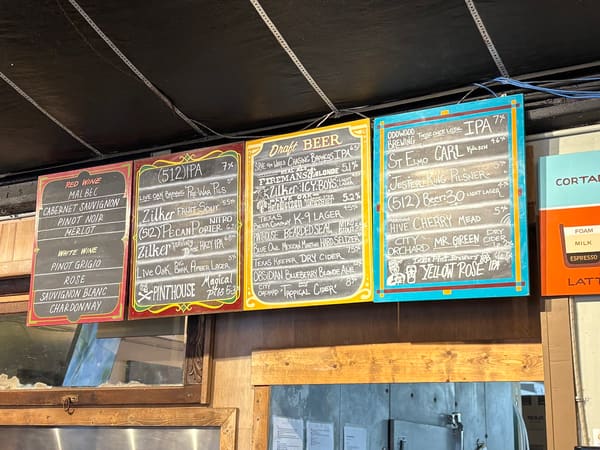 RED WINE
MALBEC
CABERNET SAUVIGNON
PINOT NOIR
MERLOT
WHITE WINE
PINOT GRIGIO
ROSE
SAUVIGNON BLANC
CHARDONNAY
(512) IPA 7%
LIVE OAK BREWING PRE WAR PILS
Zilker FRUIT SOUR 5%
(512) PECAN PORTER NITRO
Zilker HAZY IPA
LIVE OAK BIG BARK AMBER LAGER
PINTHOUSE Magical
Draft BEER
CHASING BRONCOS IPA
REAL ALE FIREMANS #4 BLONDE 5.1%
Zilker "ICY BOYS"
5.2%
TEXAS
K-9 LAGER
HOUSE BEARDED SEAL
BLUE OWL MEXICAN MARTINI HARD SELTZER
TEXAS KEEPER DRY CIDER
OBSIDIAN BLUEBERRY BLONDE ALE
CITY ORCHARD "TROPICAL CIDER"
ODDWOOD BREWING IPA 7%
ST ELMO CARL KOLSCH
JESTER KING PILSNER
(512) BEER:30 LIGHT LAGER
HIVE CHERRY MEAD 5%
CITY ORCHARD MR GREEN DRY CIDER
YELLOW ROSE IPA
CORTAD
FOAM
MILK
ESPRESSO
LATT